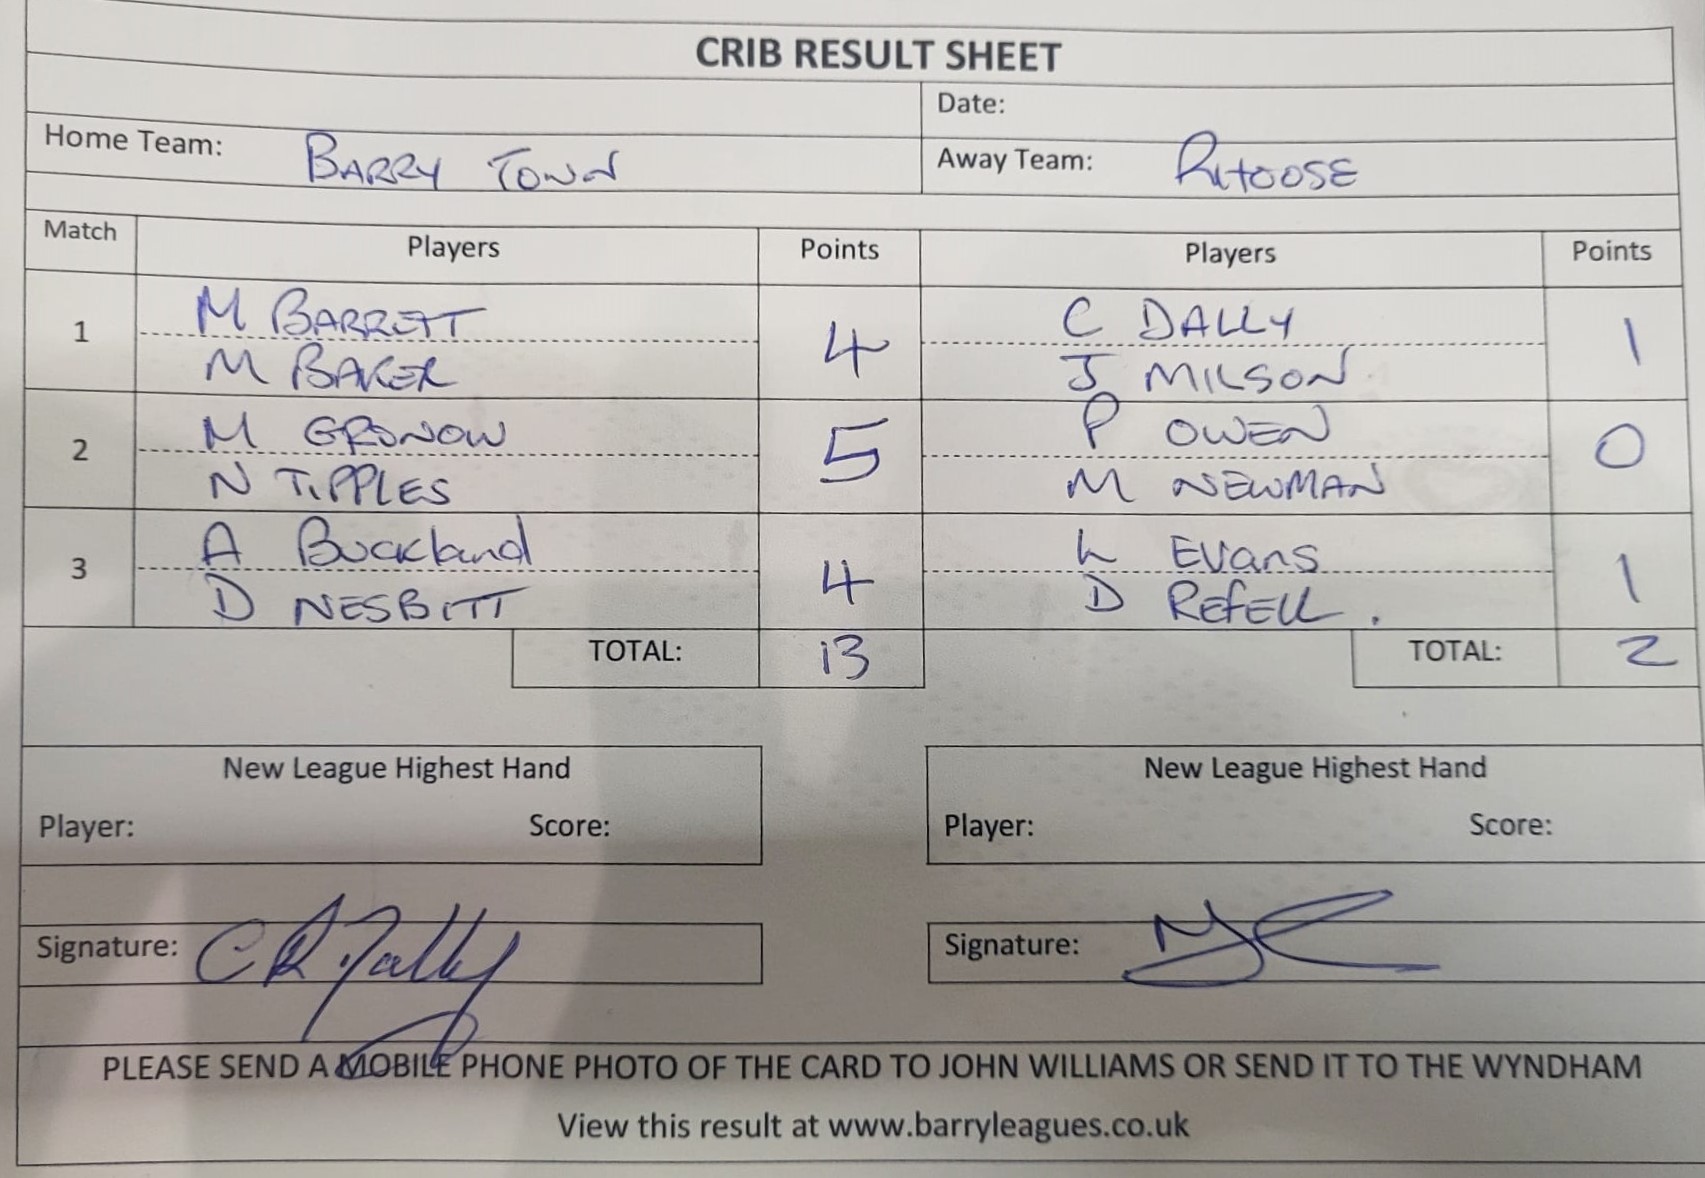 CRIB RESULT SHEET
Date:
Home Team: BARRY TOWN
Away Team: RHOOSE
Match Players Points Players Points
1 M BARRETT 4 C DALLY 1
M BAKER J MILSON
2 M GRONOW 5 P OWEN 0
N TIPPLES M NEWMAN
3 A Buckland 4 L Evans 1
D NESBITT D REFELL.
TOTAL: 13 TOTAL: 2
New League Highest Hand New League Highest Hand
Player: Score: Player: Score:
Signature: C R Dally Signature:
PLEASE SEND A MOBILE PHONE PHOTO OF THE CARD TO JOHN WILLIAMS OR SEND IT TO THE WYNDHAM
View this result at www.barryleagues.co.uk